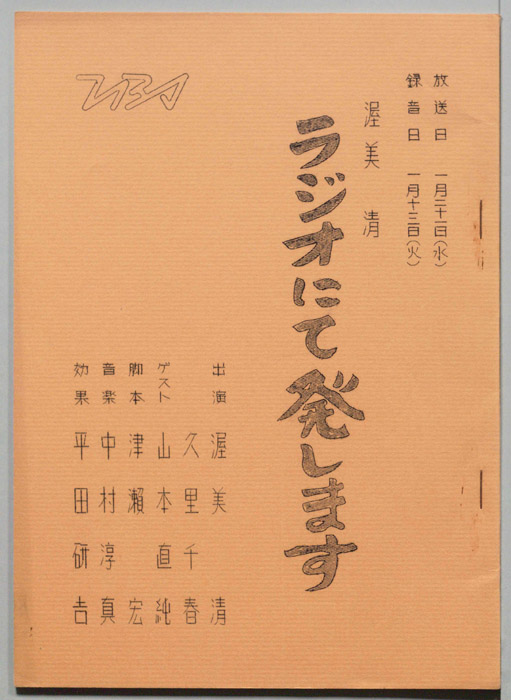 放送日 一月二十一日(水)
録音日 一月十三日(火)
渥美清
ラジオにて発します
出演 渥美清
久里千春
ゲスト 山本直純
脚本 津瀬宏
音楽 中村淳真
効果 平田研吉
TBS